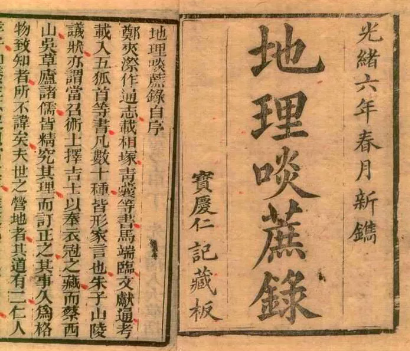 光緒六年春月新鐫
地理啖蔗錄
寶慶仁記藏板
地理啖蔗錄自序
鄭夾漈作通志載相塚青囊等書馬端臨文獻通考
載入五狐首等書凡數十種皆形家言也朱子山陵
議狀亦謂當召術士擇吉土以奉衣冠之藏而蔡西
山吳草廬諸儒皆精究其理而訂正之其事久為格
物致知者所不諱矣夫世之營地者其道有二仁人